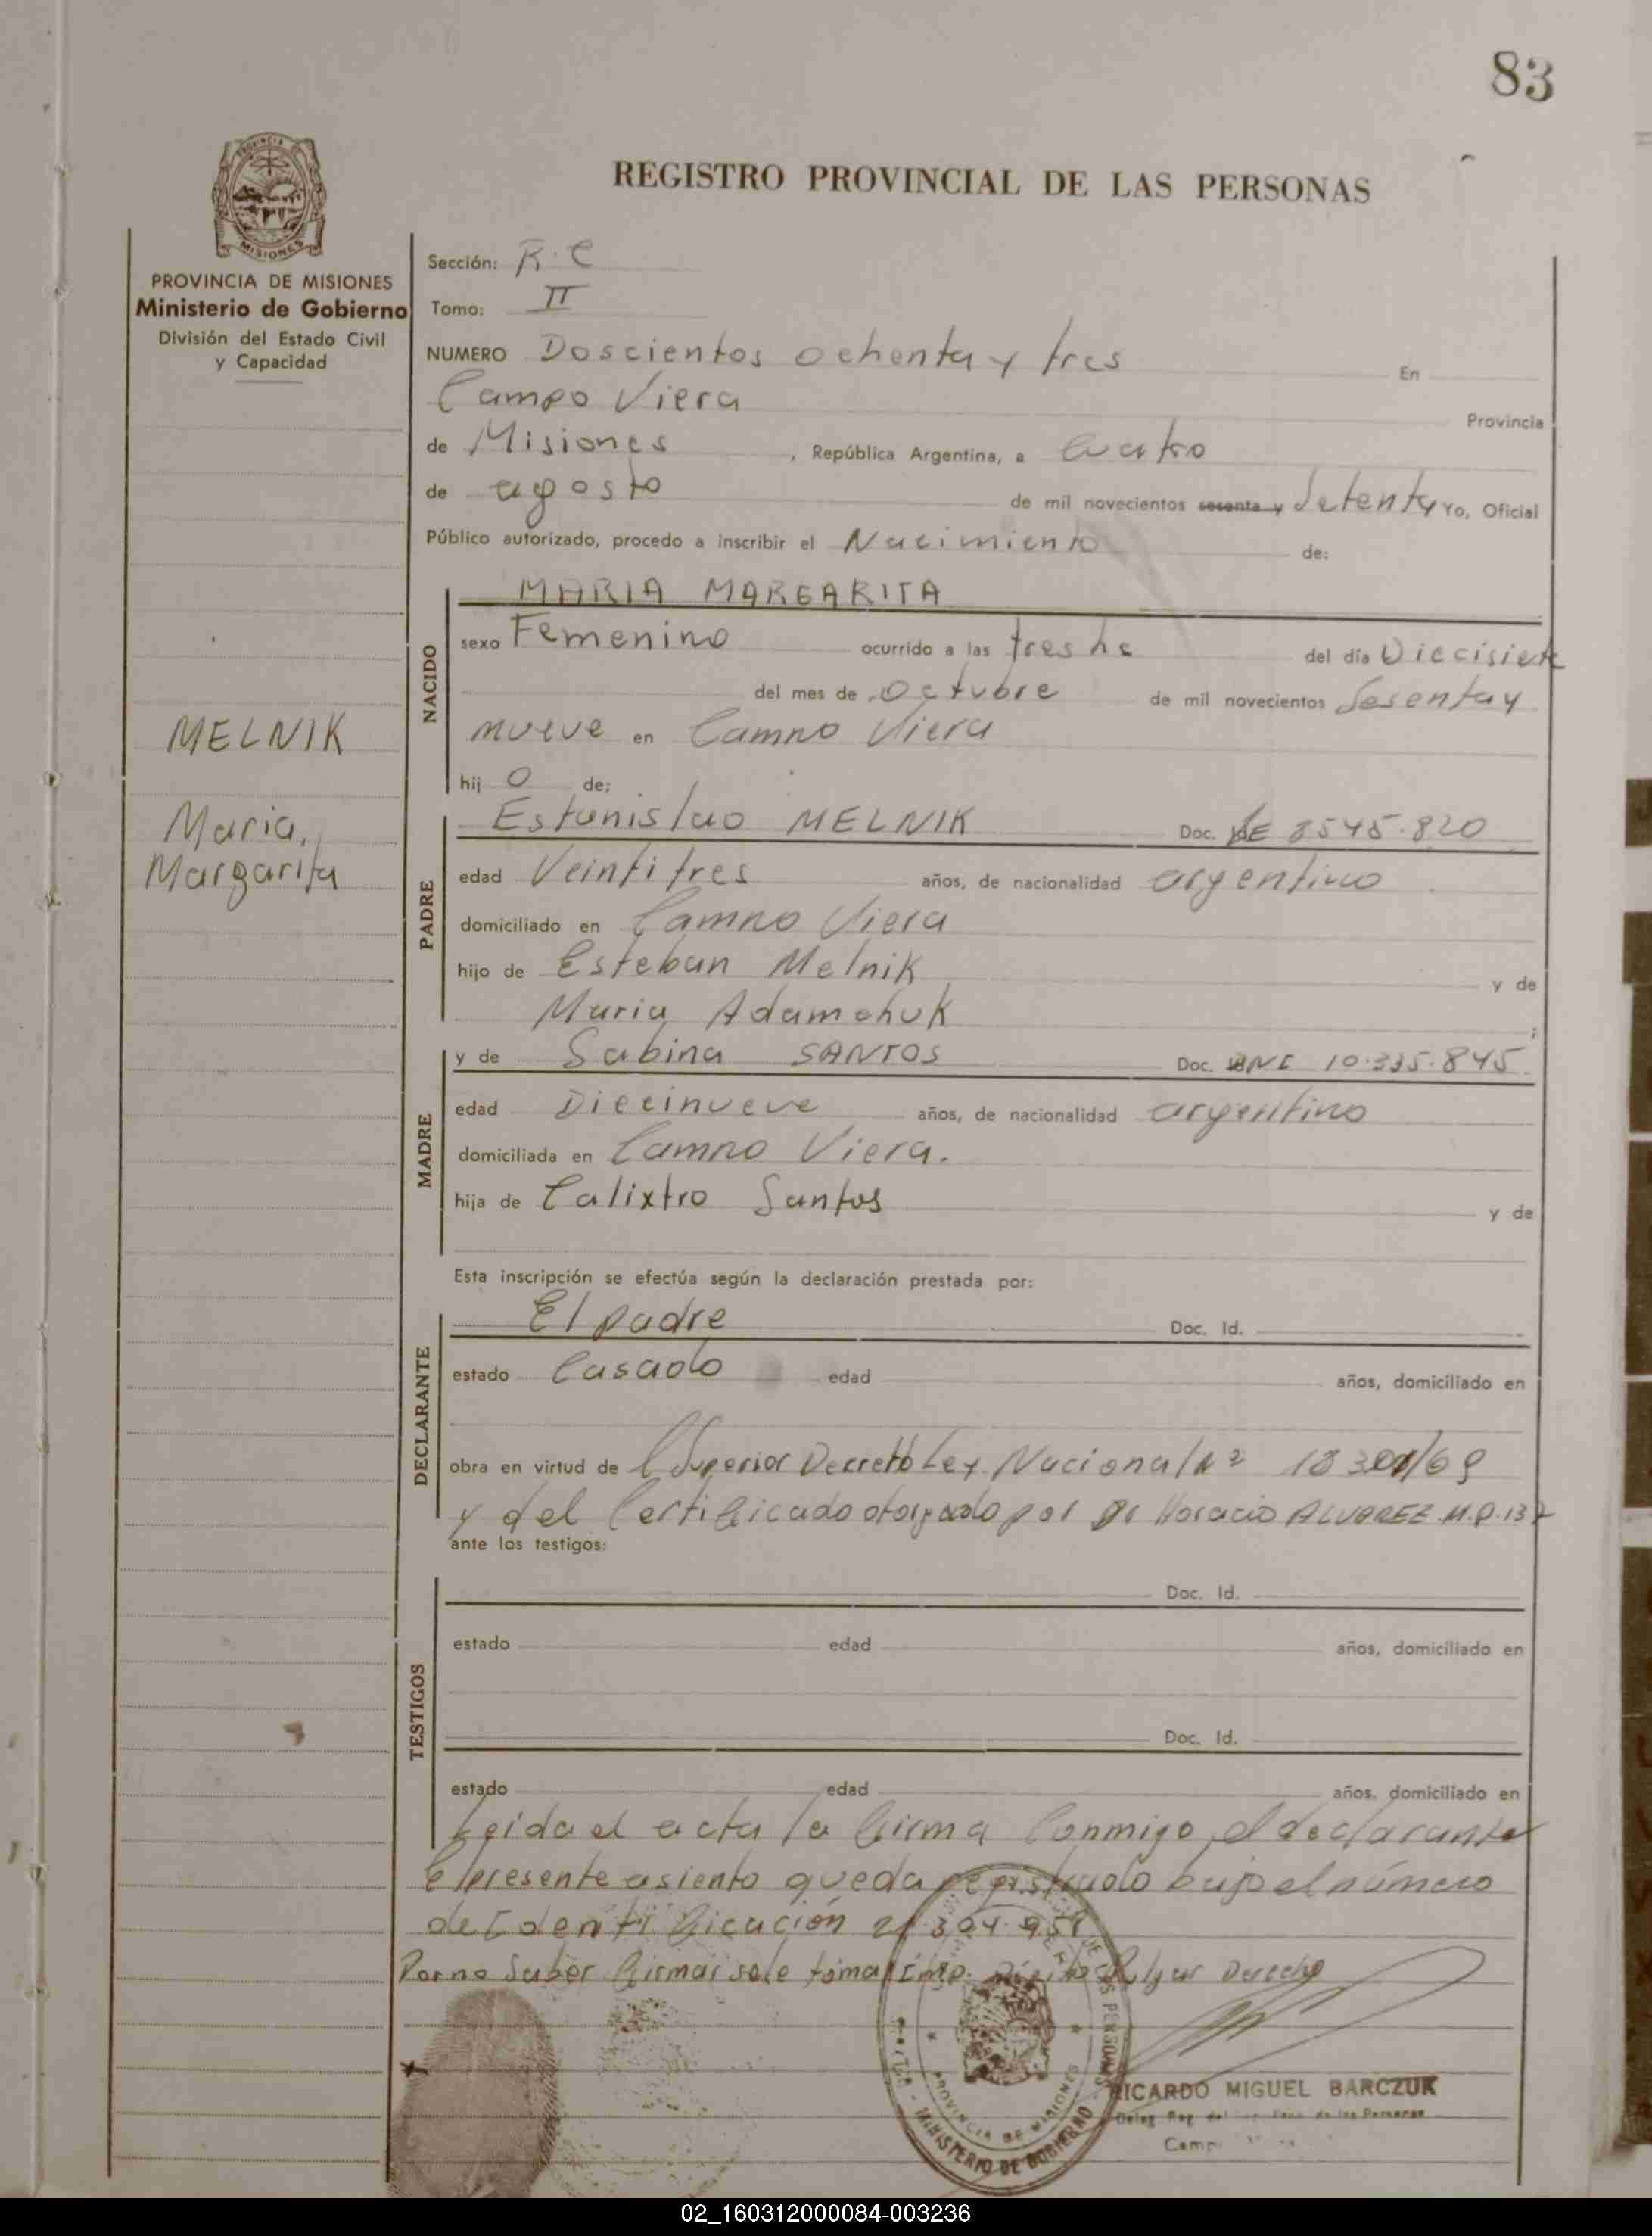 83
PROVINCIA DE
MISIONES
REGISTRO PROVINCIAL DE LAS PERSONAS
PROVINCIA DE MISIONES
Ministerio de Gobierno
División del Estado Civil
y Capacidad
Sección: R.C
Tomo: II
NUMERO Doscientos ochenta y tres En
Campo Viera Provincia
de Misiones, República Argentina, a Cuatro
de agosto de mil novecientos sesenta y Setenta Yo, Oficial
Público autorizado, procedo a inscribir el Nacimiento de:
NACIDO
MARIA MARGARITA
sexo Femenino ocurrido a las tres hs del día Diecisiete
del mes de Octubre de mil novecientos Sesenta y
nueve en Campo Viera
hij o de;
MELNIK
Maria,
Margarita
PADRE
Estanislao MELNIK Doc. LE 8545.820
edad Veintitres años, de nacionalidad argentino
domiciliado en Campo Viera
hijo de Esteban Melnik y de
Maria Adamchuk ;
MADRE
y de Sabina SANTOS Doc. DNI 10.335.845
edad Diecinueve años, de nacionalidad argentino
domiciliada en Campo Viera.
hija de Calixtro Santos y de
Esta inscripción se efectúa según la declaración prestada por:
DECLARANTE
El padre Doc. Id.
estado Casado edad años, domiciliado en
obra en virtud de Superior Decreto Ley Nacional Nº 18
y del Certificado otorgado por Dr Horacio ALVAREZ M.P. 137
ante los testigos:
TESTIGOS
Doc. Id.
estado edad años, domiciliado en
Doc. Id.
estado edad años, domiciliado en
Leida el acta la firma conmigo el declarante
El presente asiento queda registrado bajo el número
de Identificación 21.304.951
Por no Saber firmar se le toma Imp. Digito Pulgar Derecho
PROVINCIA DE MISIONES
MINISTERIO DE GOBIERNO
RICARDO MIGUEL BARCZUK
de las Personas
02_160312000084-003236